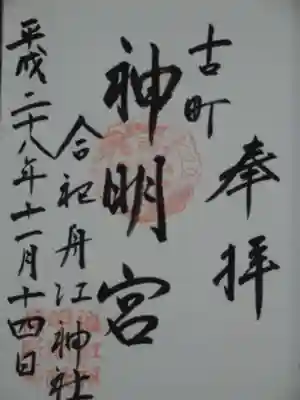 奉拝
古町
神明宮
合祀丹江神社
平成二十八年十一月十四日